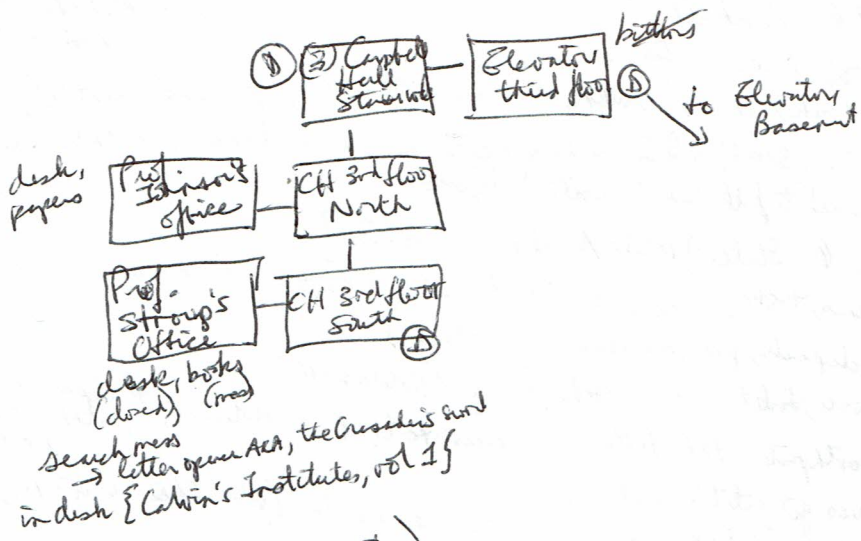 buttons
D
(3) Campbell
Hall
Stairwell
Elevator
third floor
D
to Elevator
Basement
desk,
papers
Prof
Johnson's
office
CH 3rd floor
North
Prof.
Stroup's
Office
CH 3rd floor
South
D
desk, books
(closed) (mess)
search mess
→ letter opener AKA, the Crusader's sword
in desk {Calvin's Institutes, vol 1}